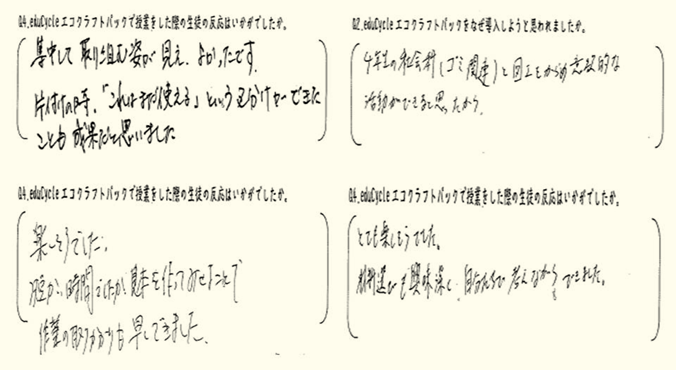 Q4.eduCycleエコクラフトパックで授業をした際の生徒の反応はいかがでしたか。
集中して取り組む姿が見え、よかったです。
片付けの時、「これはまだ使える」という見分けができた
ことも成果だと思いました
Q2.eduCycleエコクラフトパックをなぜ導入しようと思われましたか。
4年生の社会科(ゴミ関連)と図工をからめ意欲的な
活動ができると思ったから。
Q4.eduCycleエコクラフトパックで授業をした際の生徒の反応はいかがでしたか。
楽しそうでした。
短かい時間でしたが、見本を作ってみせたことで
作業の取りかかりも早くできました。
Q4.eduCycleエコクラフトパックで授業をした際の生徒の反応はいかがでしたか。
とても楽しそうでした。
材料選びも興味深く、自分たちで考えながら できました。